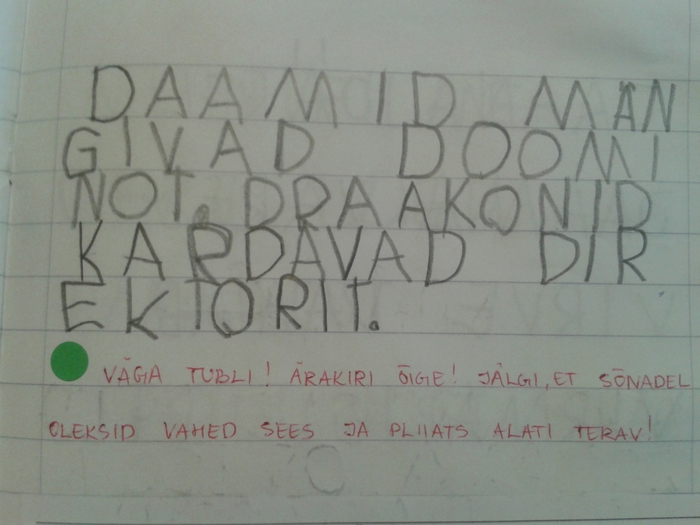 DAAMID MÄN
GIVAD DOOMI
NOT. DRAAKONID
KARDAVAD DIR
EKTORIT.
VÄGA TUBLI! ÄRAKIRI ÕIGE! JÄLGI, ET SÕNADEL
OLEKSID VAHED SEES JA PLIIATS ALATI TERAV!